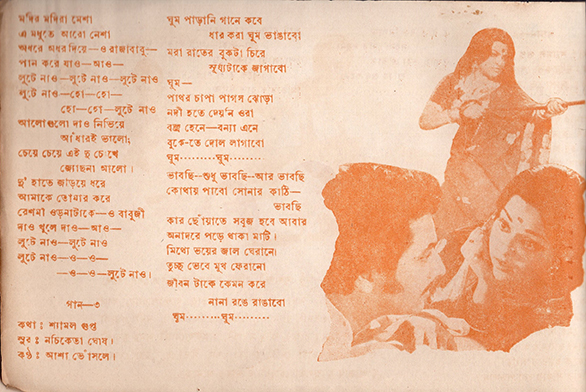 মদির মদিরা মেশা
এ মধুতে আরো নেশা
অধরে অধর দিয়ে—ও রাজাবাবু—
পান করে যাও—আও—
লুটে নাও—লুটে নাও—লুটে নাও
লুটে নাও—হো—হো—
হো—হো—লুটে নাও
আলোগুলো দাও নিভিয়ে
আঁধারই ভালো;
চেয়ে চেয়ে এই দু চোখে
জ্যোছনা আলো।
দু' হাতে জড়িয়ে ধরে
আমাকে তোমার করে
রেশমী ওড়নাটাকে—ও বাবুজী
দাও খুলে দাও—আও—
লুটে নাও—লুটে নাও
লুটে নাও—ও—ও—
—ও—ও—লুটে নাও।
গান—৩
কথা : শ্যামল গুপ্ত
সুর : নচিকেতা ঘোষ।
কণ্ঠ : আশা ভোঁসলে।
ঘুম পাড়ানি গানে কবে
ধার করা ঘুম ভাঙাবো
মরা রাতের বুকটা চিরে
সূর্য্যটাকে জাগাবো
ঘুম—
পাথর চাপা পাগল ঝোড়া
নদী হতে দেয়নি ওরা
বজ্র হেনে—বন্যা এনে
বুকে-তে দোল লাগাবো
ঘুম………ঘুম………
ভাবছি—শুধু ভাবছি—আর ভাবছি
কোথায় পাবো সোনার কাঠি—
ভাবছি
কার ছোঁয়াতে সবুজ হবে আবার
অনাদরে পড়ে থাকা মাটি।
মিথ্যে ভয়ের জাল ঘেরানো
তুচ্ছ ভেবে মুখ ফেরানো
জীবন টাকে কেমন করে
নানা রঙে রাঙাবো
ঘুম………ঘুম………